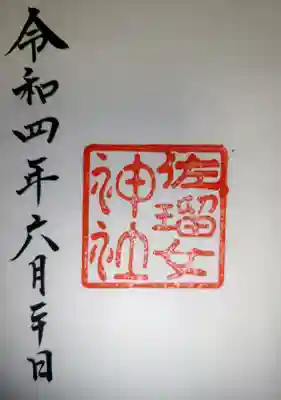 佐瑠女
神社
令和四年六月日